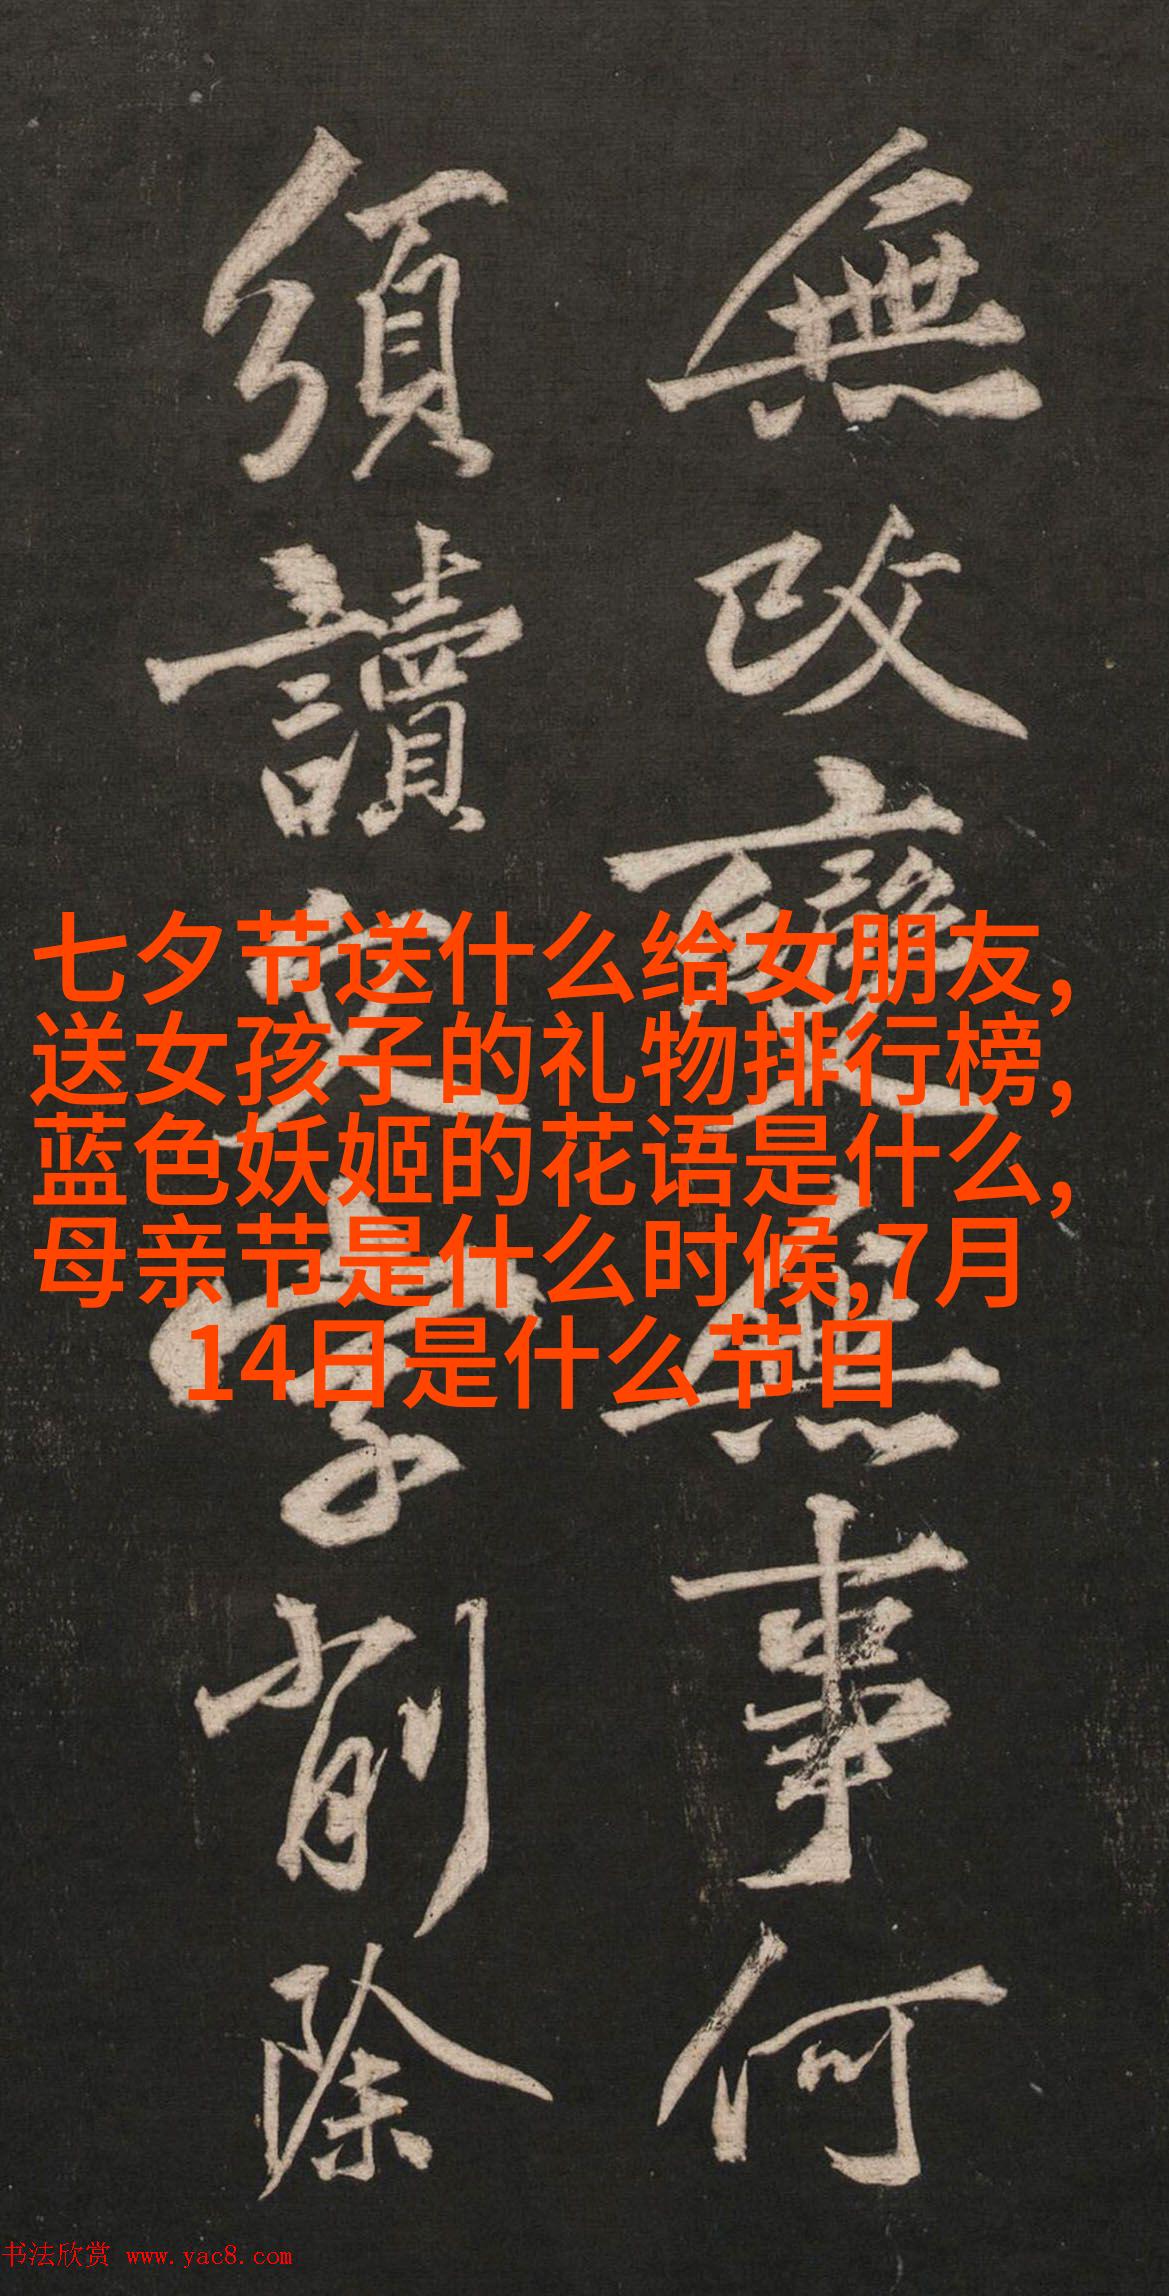 無改變無事何
須讀文字削除
七夕节送什么给女朋友,
送女孩子的礼物排行榜,
蓝色妖姬的花语是什么,
母亲节是什么时候,7月
14日是什么节日
书法欣赏 www.yac8.com